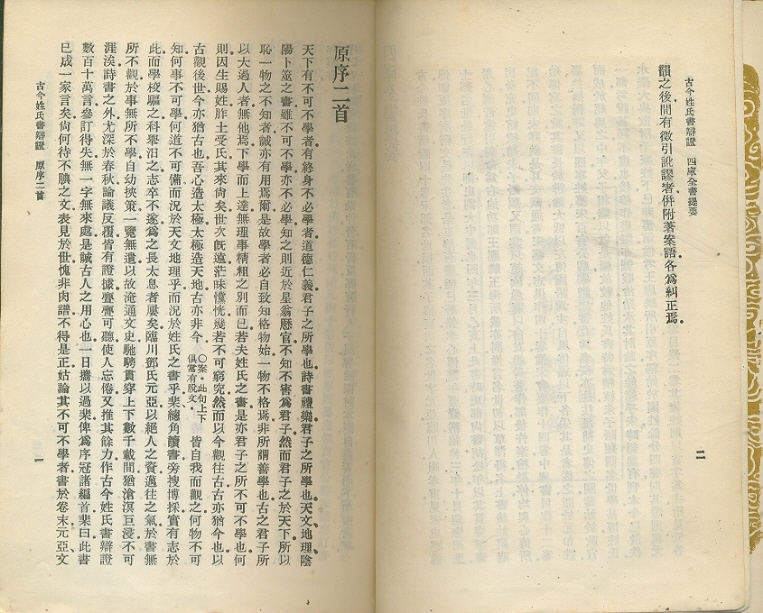 古今姓氏書辯證　四庫全書提要
韻之後間有徵引訛謬者併附著案語各爲糾正焉
二
原序二首
天下有不可不學者有終身不必學者道德仁義君子之所學也詩書禮樂君子之所學也天文地理陰
陽卜筮之書雖不可不學亦不必學知之則近於星翁曆官不知不害爲君子然而君子之於天下所以
恥一物之不知者誠亦有用焉爾是故學者必自致知格物始一物不格焉非所謂善學也古之君子所
以大過人者無他焉下學而上達無理事精粗之別而已若夫姓氏之書是亦君子之所不可不學也何
則因生賜姓胙土受氏其來尚矣世次旣遠茫昧懭恍幾若不可窮究然而以今觀往古古亦猶今也以
古觀後世今亦猶古也吾心造太極太極造天地古亦非今○案此句上下俱當有脫文皆自我而觀之何物不可
知何事不可學何道不可備而況於天文地理乎而況於姓氏之書乎棐總角讀書旁搜博採實有志於
此而學校驅之科舉汨之志卒不遂爲之長太息者屢矣臨川鄧氏元亞以絕人之資邁往之氣於書無
所不觀於事無所不學自幼挾策一覽無遺以故淹通文史馳騁貫穿上下數千載間猶滄溟巨浸不可
涯涘詩書之外尤深於春秋論議反覆皆有證據亹亹可聽使人忘倦又推其餘力作古今姓氏書辯證
數百十萬言參訂得失無一字無來處是誠古人之用心也一日攜以過棐俾爲序冠諸編首棐曰此書
已成一家言矣尙何待不腆之文表見於世愧非肉譜不得是正姑論其不可不學者書於卷末元亞文
古今姓氏書辯證　原序二首
一